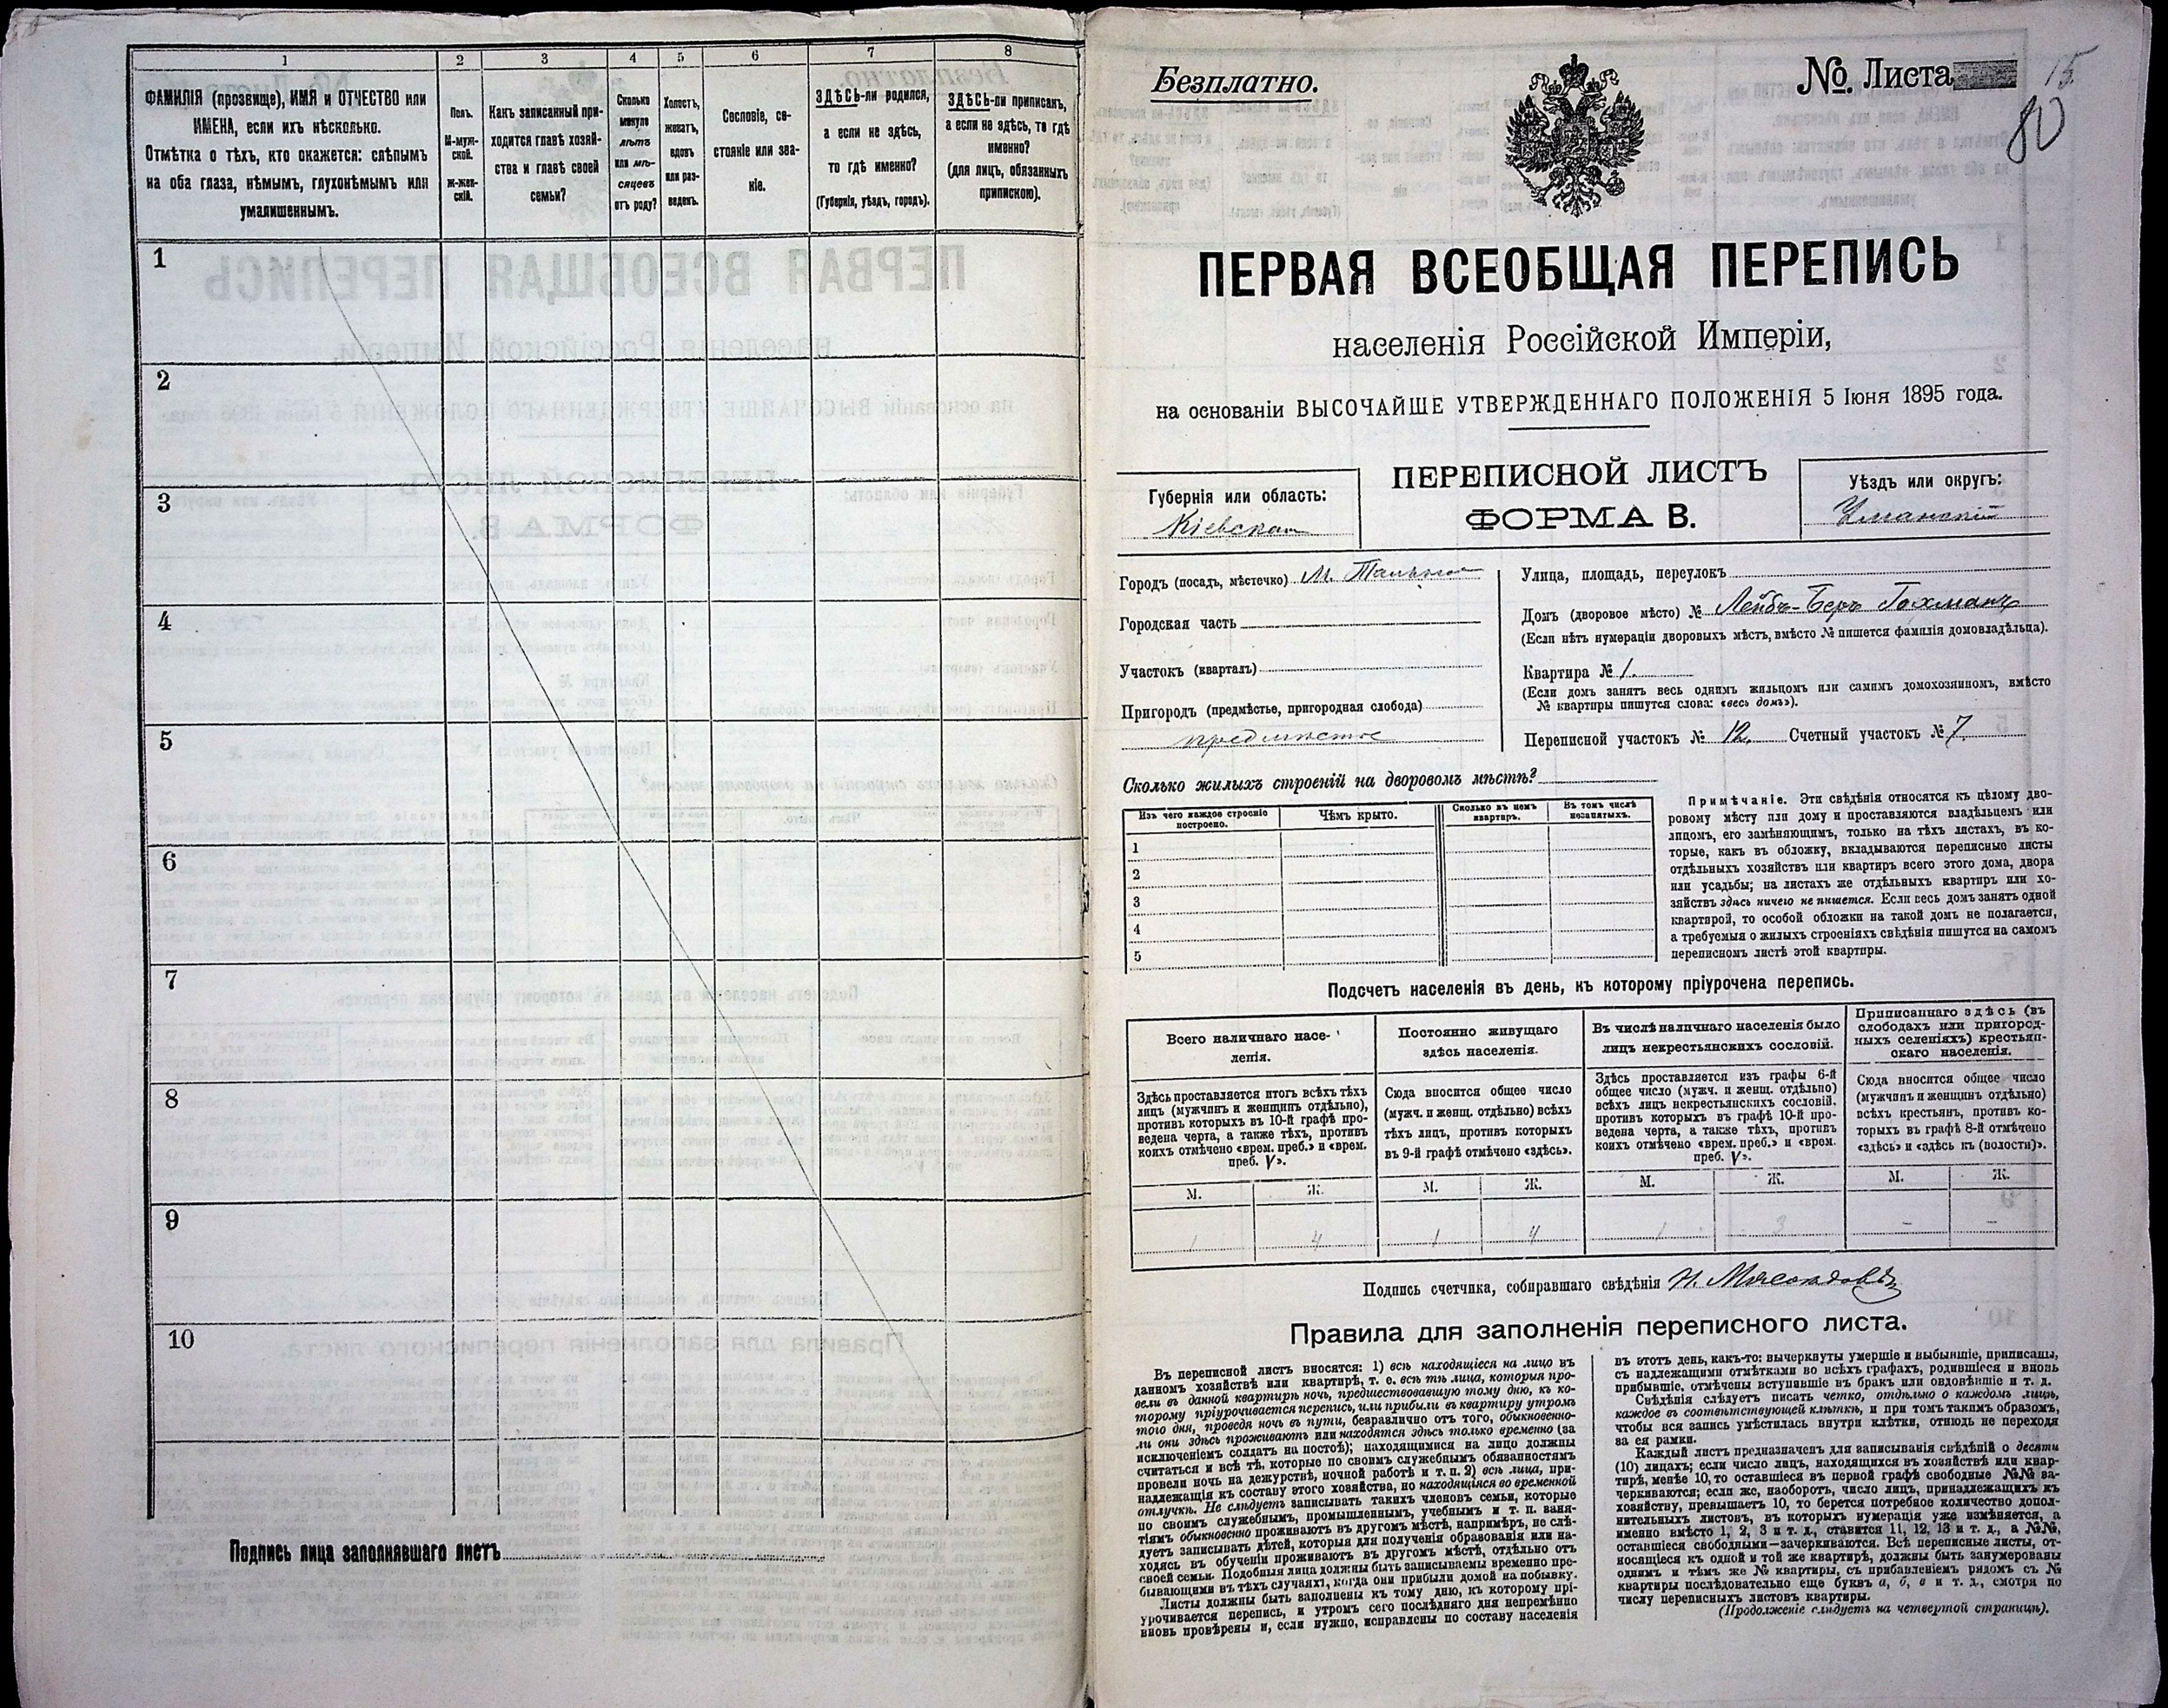 1
2
3
4
5
6
7
8
ФАМИЛІЯ (прозвище), ИМЯ и ОТЧЕСТВО или
ИМЕНА, если ихъ нѣсколько.
Отмѣтка о тѣхъ, кто окажется: слѣпымъ
на оба глаза, нѣмымъ, глухонѣмымъ или
умалишеннымъ.
Полъ.
М-муж-
ской.
Ж-жен-
скій.
Какъ записанный при-
ходится главѣ хозяй-
ства и главѣ своей
семьи?
Сколько
минуло
лѣтъ
или мѣ-
сяцевъ
отъ роду?
Холостъ,
женатъ,
вдовъ
или раз-
веденъ.
Сословіе, со-
стояніе или зва-
ніе.
ЗДѢСЬ-ли родился,
а если не здѣсь,
то гдѣ именно?
(Губернія, уѣздъ, городъ).
ЗДѢСЬ-ли приписанъ,
а если не здѣсь, то гдѣ
именно?
(для лицъ, обязанныхъ
припискою).
1
2
3
4
5
6
7
8
9
10
Подпись лица заполнявшаго листъ
Безплатно.
№. Листа
15
80
ПЕРВАЯ ВСЕОБЩАЯ ПЕРЕПИСЬ
населенія Россійской Имперіи,
на основаніи ВЫСОЧАЙШЕ УТВЕРЖДЕННАГО ПОЛОЖЕНІЯ 5 Іюня 1895 года.
Губернія или область:
Кіевская
ПЕРЕПИСНОЙ ЛИСТЪ
ФОРМА В.
Уѣздъ или округъ:
Уманскій
Городъ (посадъ, мѣстечко) М. Тальное
Городская часть
Участокъ (кварталъ)
Пригородъ (предмѣстье, пригородная слобода)
предмѣстье
Улица, площадь, переулокъ
Домъ (дворовое мѣсто) № Лейбъ-Беръ Гохманъ
(Если нѣтъ нумераціи дворовыхъ мѣстъ, вмѣсто № пишется фамилія домовладѣльца).
Квартира № 1.
(Если домъ занятъ весь однимъ жильцомъ или самимъ домохозяиномъ, вмѣсто
№ квартиры пишутся слова: «весь домъ»).
Переписной участокъ № 12. Счетный участокъ № 7.
Сколько жилыхъ строеній на дворовомъ мѣстѣ?
Изъ чего каждое строеніе
построено.
Чѣмъ крыто.
Сколько въ немъ
квартиръ.
Въ томъ числѣ
незанятыхъ.
1
2
3
4
5
Примѣчаніе. Эти свѣдѣнія относятся къ цѣлому дво-
ровому мѣсту или дому и проставляются владѣльцемъ или
лицомъ, его замѣняющимъ, только на тѣхъ листахъ, въ ко-
торые, какъ въ обложку, вкладываются переписные листы
отдѣльныхъ хозяйствъ или квартиръ всего этого дома, двора
или усадьбы; на листахъ же отдѣльныхъ квартиръ или хо-
зяйствъ здѣсь ничего не пишется. Если весь домъ занятъ одной
квартирой, то особой обложки на такой домъ не полагается,
а требуемыя о жилыхъ строеніяхъ свѣдѣнія пишутся на самомъ
переписномъ листѣ этой квартиры.
Подсчетъ населенія въ день, къ которому пріурочена перепись.
Всего наличнаго насе-
ленія.
Постоянно живущаго
здѣсь населенія.
Въ числѣ наличнаго населенія было
лицъ некрестьянскихъ сословій.
Приписаннаго здѣсь (въ
слободахъ или пригород-
ныхъ селеніяхъ) крестьян-
скаго населенія.
Здѣсь проставляется итогъ всѣхъ тѣхъ
лицъ (мужчинъ и женщинъ отдѣльно),
противъ которыхъ въ 10-й графѣ про-
ведена черта, а также тѣхъ, противъ
коихъ отмѣчено «врем. преб.» и «врем.
преб. V».
Сюда вносится общее число
(мужч. и женщ. отдѣльно) всѣхъ
тѣхъ лицъ, противъ которыхъ
въ 9-й графѣ отмѣчено «здѣсь».
Здѣсь проставляется изъ графы 6-й
общее число (мужч. и женщ. отдѣльно)
всѣхъ лицъ некрестьянскихъ сословій,
противъ которыхъ въ графѣ 10-й про-
ведена черта, а также тѣхъ, противъ
коихъ отмѣчено «врем. преб.» и «врем.
преб. V».
Сюда вносится общее число
(мужчинъ и женщинъ отдѣльно)
всѣхъ крестьянъ, противъ ко-
торыхъ въ графѣ 8-й отмѣчено
«здѣсь» и «здѣсь къ (волости)».
М. Ж. М. Ж. М. Ж. М. Ж.
1 4 1 4 1 3 - -
Подпись счетчика, собиравшаго свѣдѣнія Н. Мясоѣдовъ
Правила для заполненія переписного листа.
Въ переписной листъ вносятся: 1) всѣ находящіеся на лицо въ
данномъ хозяйствѣ или квартирѣ, т. е. всѣ тѣ лица, которыя про-
вели въ данной квартирѣ ночь, предшествовавшую тому дню, къ ко-
торому пріурочивается перепись, или прибыли въ квартиру утромъ
того дня, проведя ночь въ пути, безразлично отъ того, обыкновенно-
ли они здѣсь проживаютъ или находятся здѣсь только временно (за
исключеніемъ солдатъ на постоѣ); находящимися на лицо должны
считаться и всѣ тѣ, которые по своимъ служебнымъ обязанностямъ
провели ночь на дежурствѣ, ночной работѣ и т. п. 2) всѣ лица, при-
надлежащія къ составу этого хозяйства, но находящіяся во временной
отлучкѣ. Не слѣдуетъ записывать такихъ членовъ семьи, которые
по своимъ служебнымъ, промышленнымъ, учебнымъ и т. п. заня-
тіямъ обыкновенно проживаютъ въ другомъ мѣстѣ, напримѣръ, не слѣ-
дуетъ записывать дѣтей, которыя для полученія образованія или на-
ходясь въ обученіи проживаютъ въ другомъ мѣстѣ, отдѣльно отъ
своей семьи. Подобныя лица должны быть записываемы временно пре-
бывающими въ тѣхъ случаяхъ, когда они прибыли домой на побывку.
Листы должны быть заполнены къ тому дню, къ которому прі-
урочивается перепись, и утромъ сего послѣдняго дня непремѣнно
вновь провѣрены и, если нужно, исправлены по составу населенія
въ этотъ день, какъ-то: вычеркнуты умершіе и выбывшіе, приписаны,
съ надлежащими отмѣтками во всѣхъ графахъ, родившіеся и вновь
прибывшіе, отмѣчены вступившіе въ бракъ или овдовѣвшіе и т. д.
Свѣдѣнія слѣдуетъ писать четко, отдѣльно о каждомъ лицѣ,
каждое въ соотвѣтствующей клѣткѣ, и при томъ такимъ образомъ,
чтобы вся запись умѣстилась внутри клѣтки, отнюдь не переходя
за ея рамки.
Каждый листъ предназначенъ для записыванія свѣдѣній о десяти
(10) лицахъ; если число лицъ, находящихся въ хозяйствѣ или квар-
тирѣ, менѣе 10, то оставшіеся въ первой графѣ свободные №№ за-
черкиваются; если же, наоборотъ, число лицъ, принадлежащихъ къ
хозяйству, превышаетъ 10, то берется потребное количество допол-
нительныхъ листовъ, въ которыхъ нумерація уже измѣняется, а
именно вмѣсто 1, 2, 3 и т. д., ставится 11, 12, 13 и т. д., а №№,
оставшіеся свободными—зачеркиваются. Всѣ переписные листы, от-
носящіеся къ одной и той же квартирѣ, должны быть занумерованы
однимъ и тѣмъ же № квартиры, съ прибавленіемъ рядомъ съ №
квартиры послѣдовательно еще буквъ а, б, в и т. д., смотря по
числу переписныхъ листовъ квартиры.
(Продолженіе слѣдуетъ на четвертой страницѣ).